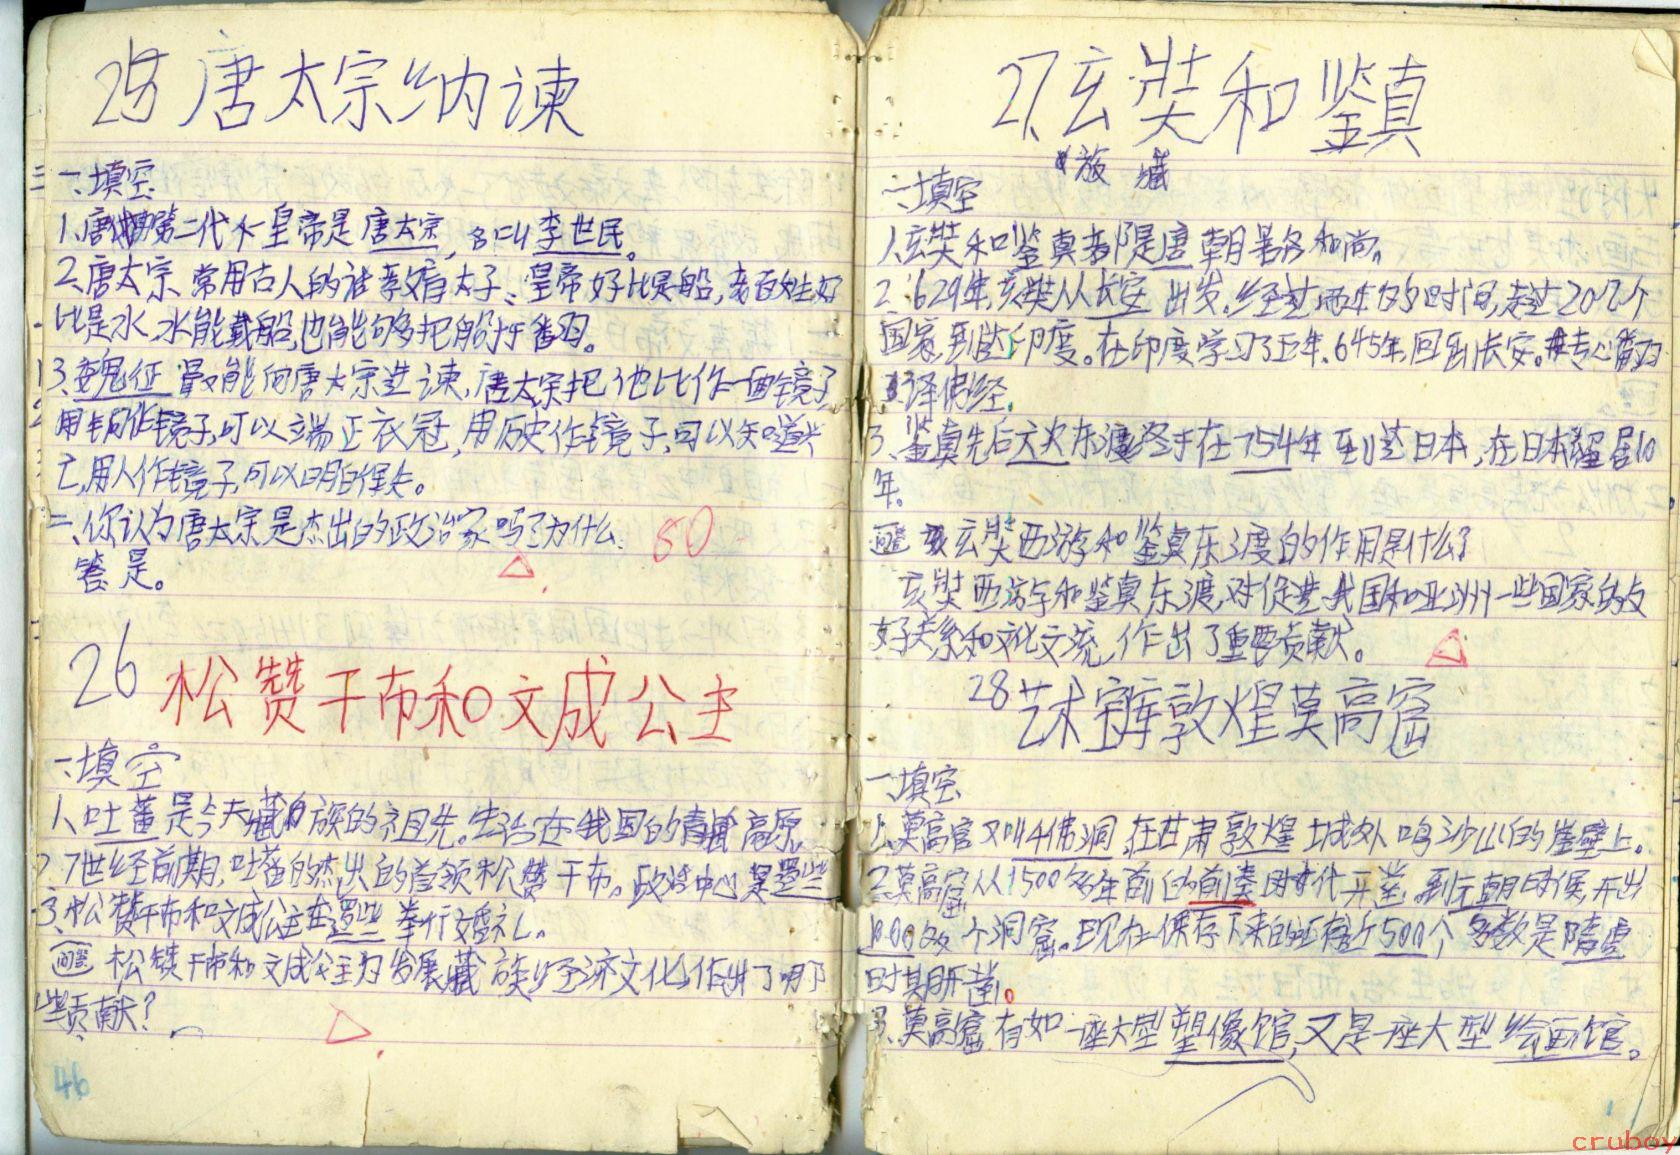 25 唐太宗纳谏
一、填空
1、唐朝第二代 皇帝是唐太宗, 名叫李世民。
2、唐太宗 常用古人的话教育太子、皇帝好比是船,老百姓好
比是水,水能载船,也能够把船 翻。
3、魏征最能向唐太宗进谏,唐太宗把他比作一面镜子
用铜作镜子,可以端正衣冠,用历史作镜子,可以知道兴
亡,用人作镜子,可以明白得失。
二、你认为唐太宗是杰出的政治家吗?为什么
80
答是。
26 松赞干布和文成公主
一、填空
1、吐蕃是今天藏族的祖先。生活在我国的青藏高原
2、7世经前期,吐蕃的杰出的首领松赞干布。政治中心是逻些
3、松赞干布和文成公主在逻些举行婚礼。
问答 松赞干布和文成公主为发展藏族经济文化作出了哪
些贡献?
46
27、玄奘和鉴真
族 藏
一、填空
1、玄奘和鉴真都是唐朝著名和尚。
2、629年,玄奘从长安出发。经过两年的时间,走过20几个
国家,到达印度。在印度学习了五年、645年,回到长安。专心翻
译佛经。
3、鉴真先后六次东渡终于在754年到达日本,在日本留居10
年。
问答 玄奘西游和鉴真东渡的作用是什么?
玄奘西游和鉴真东渡,对促进我国和亚洲一些国家的友
好关系和文化交流,作出了重要贡献。
28 艺术宝库敦煌莫高窟
一、填空
1、莫高窟又叫千佛洞,在甘肃敦煌城外鸣沙山的崖壁上。
2、莫高窟从1500多年前的前秦时代开凿。到元朝时候,开出
1000多个洞窟。现在保存下来的还有近500个 多数是隋唐
时其开凿。
3、莫高窟有如一座大型塑像馆,又是一座大型绘画馆。
cruboy